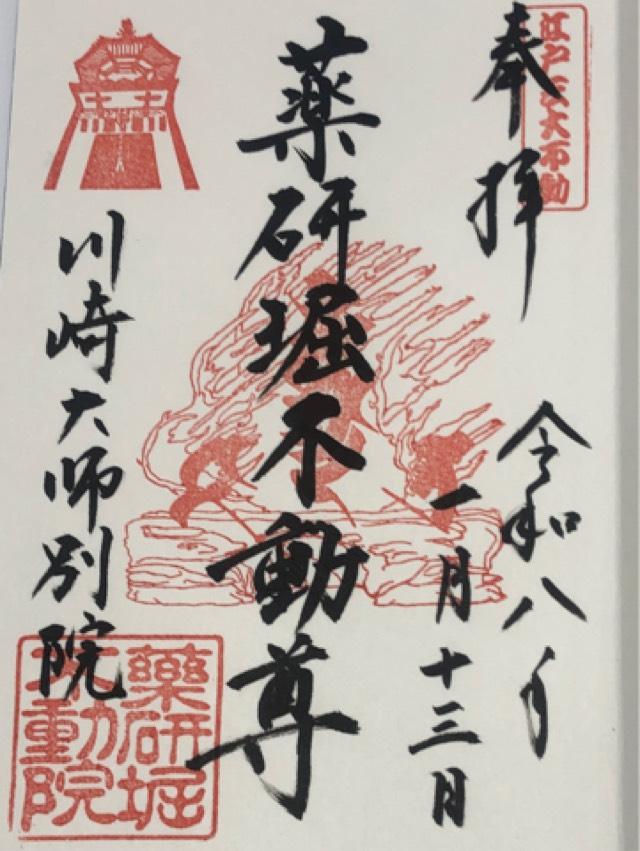 江戸三大不動
奉拝
令和八年
一月十三日
薬研堀不動尊
川崎大師別院
藥研堀
不動院